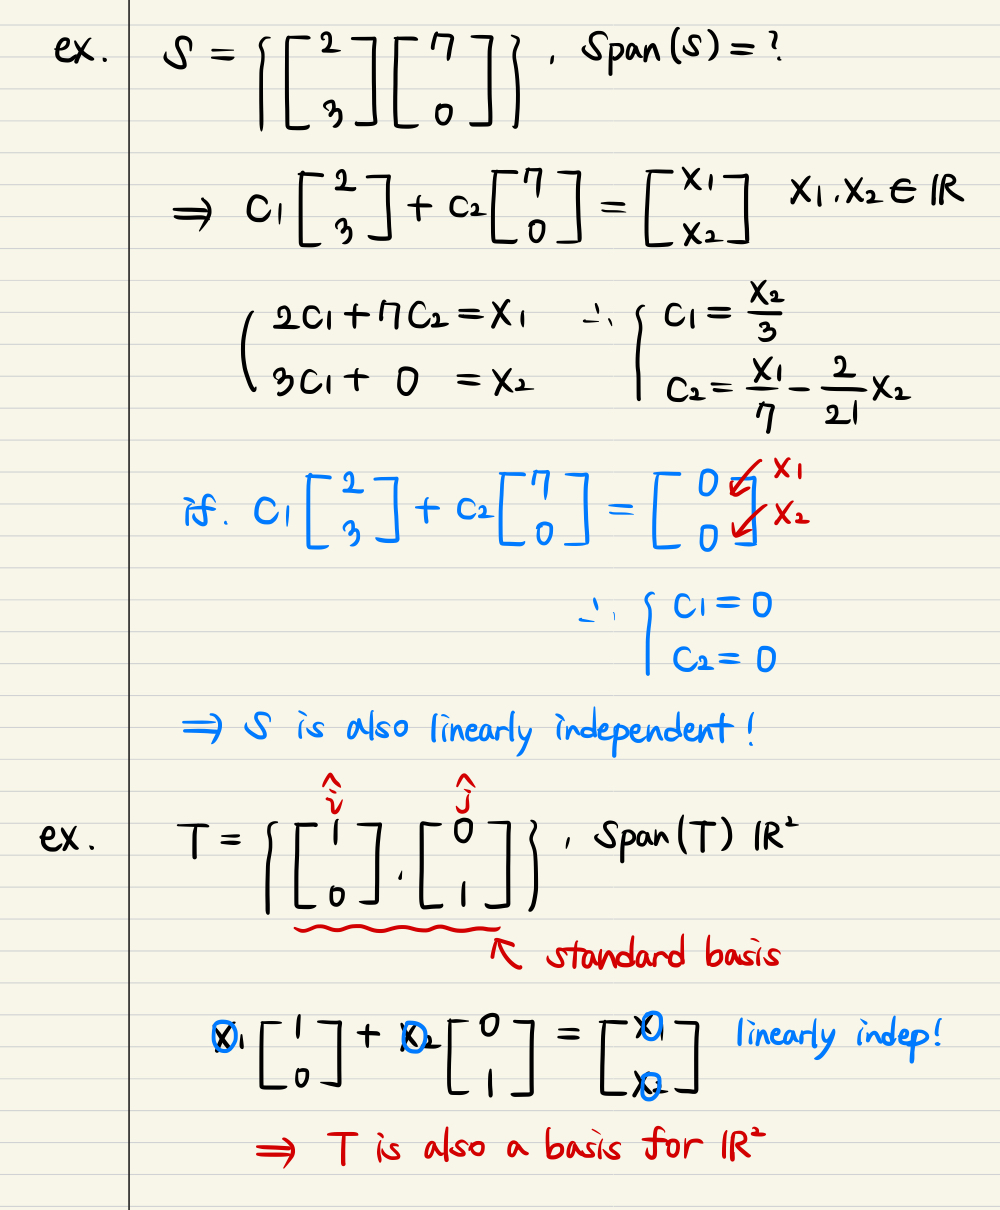 ex. S = { [2 3] [7 0] } , Span(S) = ?
⇒ C1 [2 3] + C2 [7 0] = [X1 X2] X1, X2 ∈ ℝ
( 2C1 + 7C2 = X1 ∴ { C1 = X2/3
3C1 + 0 = X2 C2 = X1/7 - 2/21 X2
if. C1 [2 3] + C2 [7 0] = [0 0] X1 X2
∴ { C1 = 0
C2 = 0
⇒ S is also linearly independent!
î ĵ
ex. T = { [1 0] , [0 1] } , Span(T) ℝ²
↖ standard basis
X1 0 [1 0] + X2 0 [0 1] = [X1 0 X2 0] linearly indep!
⇒ T is also a basis for ℝ²